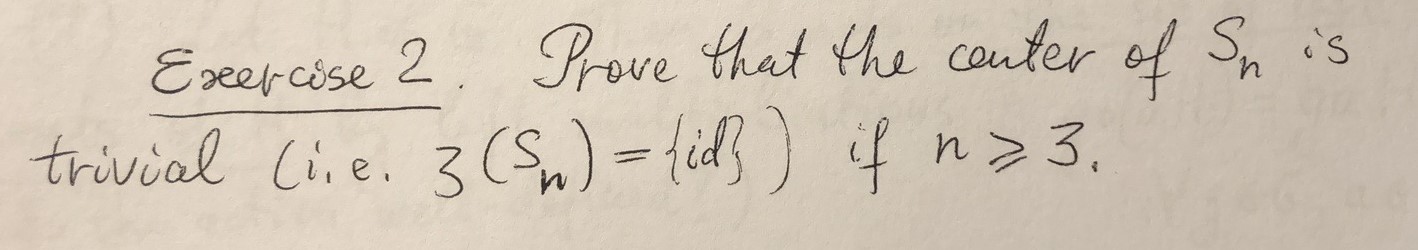 Exercise 2. Prove that the center of Sₙ is
trivial (i.e. 𝔷(Sₙ) = {id}) if n ⩾ 3.